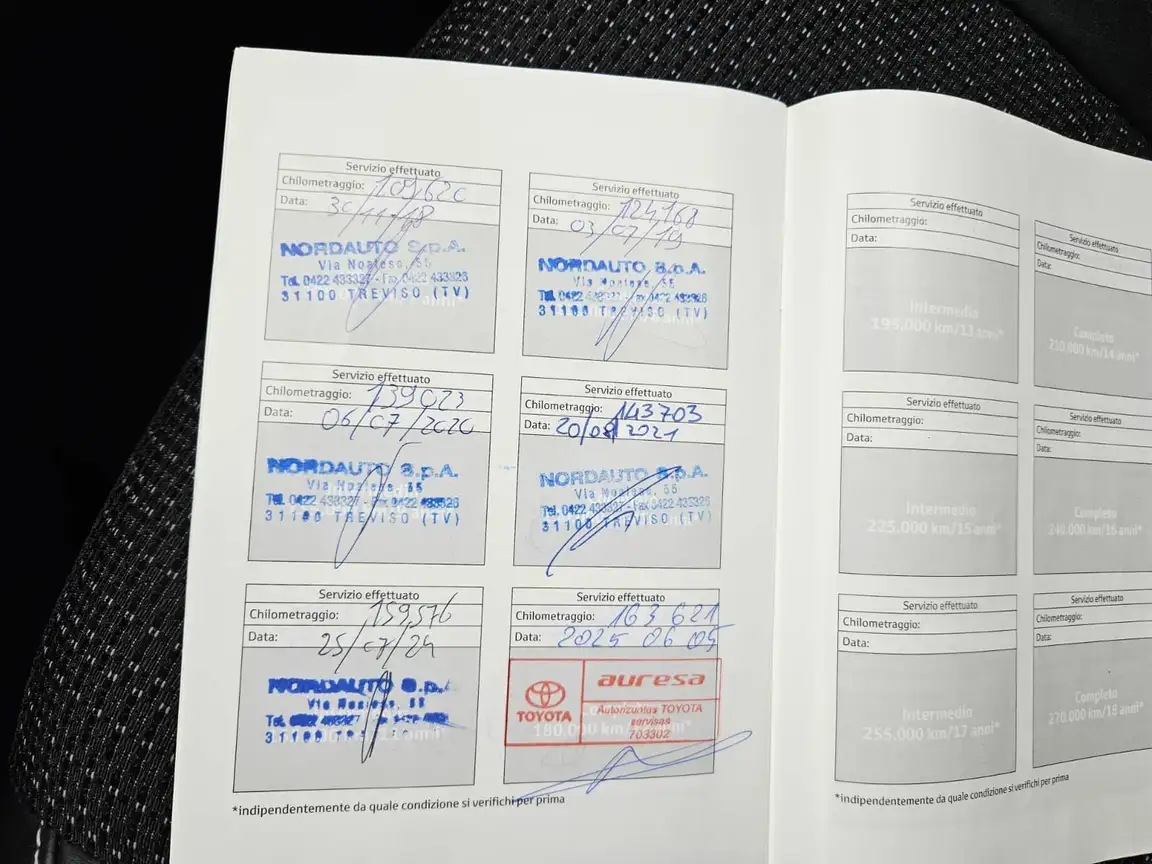 Servizio effettuato
Chilometraggio: 109620
Data: 30/11/18
NORDAUTO S.p.A.
Via Noalese, 55
Tel. 0422 433327 - Fax 0422 433326
31100 TREVISO (TV)
Servizio effettuato
Chilometraggio: 124168
Data: 03/07/19
NORDAUTO S.p.A.
Via Noalese, 55
Tel. 0422 433327 - Fax 0422 433326
31100 TREVISO (TV)
Servizio effettuato
Chilometraggio: 139023
Data: 06/07/2020
NORDAUTO S.p.A.
Via Noalese, 55
Tel. 0422 433327 - Fax 0422 433326
31100 TREVISO (TV)
Servizio effettuato
Chilometraggio: 143703
Data: 20/08/2021
NORDAUTO S.p.A.
Via Noalese, 55
Tel. 0422 433327 - Fax 0422 433326
31100 TREVISO (TV)
Servizio effettuato
Chilometraggio: 159576
Data: 25/07/24
NORDAUTO S.p.
Via Noalese, 55
Tel. 0422 433327
31100
Servizio effettuato
Chilometraggio: 163621
Data: 2025 06 05
TOYOTA
auresa
Autorizuotas TOYOTA
servisas
703302
180.000 km/
*indipendentemente da quale condizione si verifichi per prima
Servizio effettuato
Chilometraggio:
Data:
Intermedio
195.000 km/13 anni*
Servizio effettuato
Chilometraggio:
Data:
Completo
210.000 km/14 anni*
Servizio effettuato
Chilometraggio:
Data:
Intermedio
225.000 km/15 anni*
Servizio effettuato
Chilometraggio:
Data:
Completo
240.000 km/16 anni*
Servizio effettuato
Chilometraggio:
Data:
Intermedio
255.000 km/17 anni*
Servizio effettuato
Chilometraggio:
Data:
Completo
270.000 km/18 anni*
*indipendentemente da quale condizione si verifichi per prima